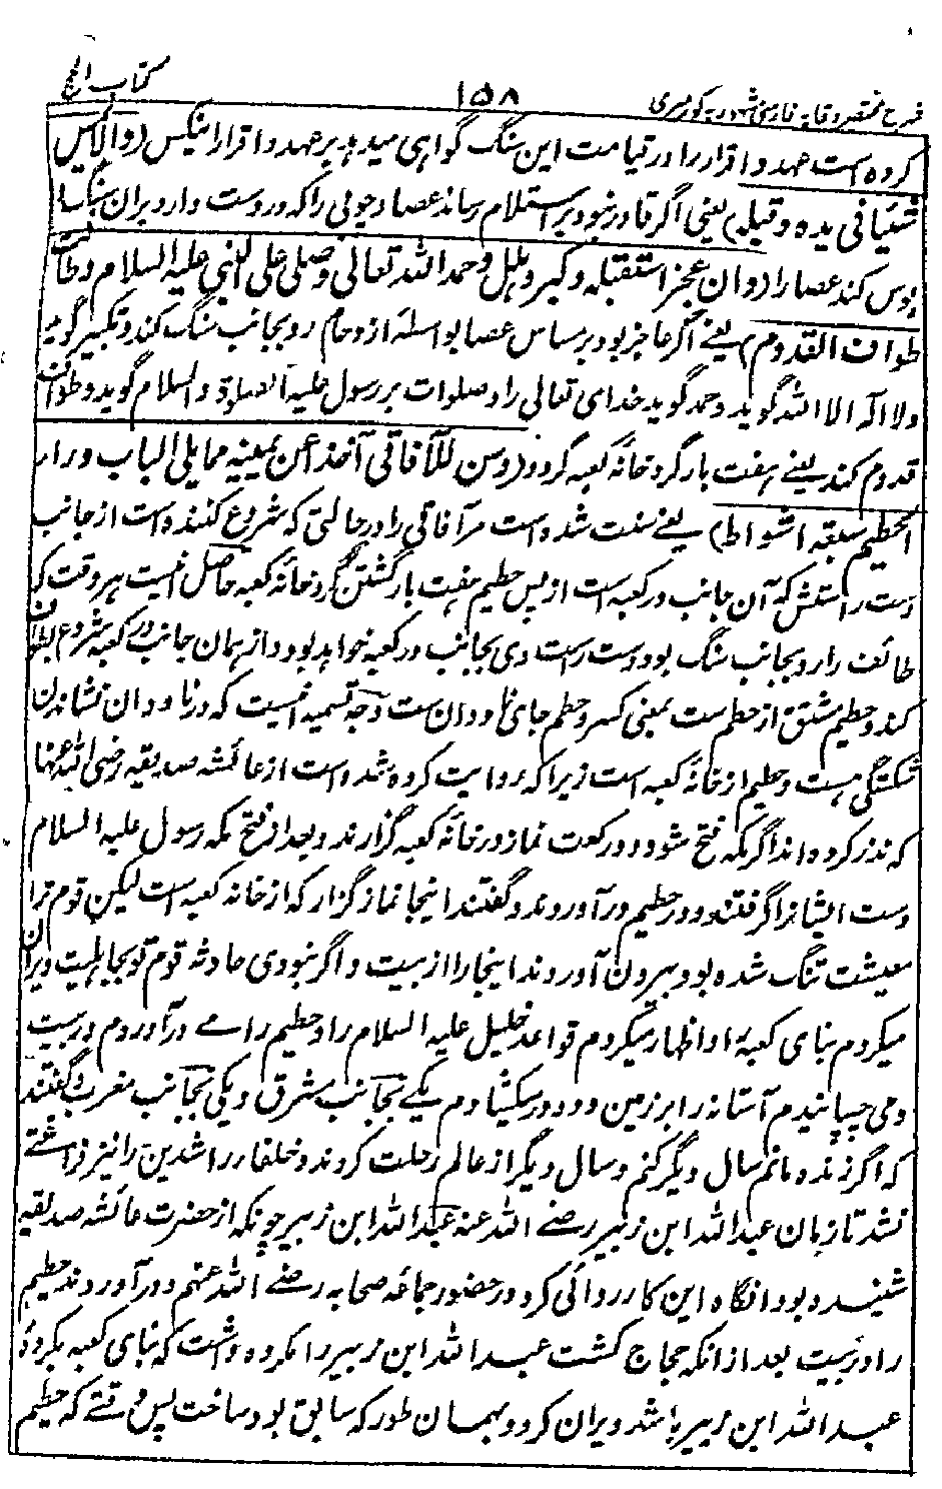 کتاب الحج
۱۵۸
شرح مختصر وقایه فارسی مشهور به کورمیری
کرده است عهد و اقرار را در قیامت این سنگ گواهی میدهد بر عهد و اقرار اینکس (و الا یمس
شیئا فی یده و قبله) یعنی اگر قادر نبود بر استلام رساند عصا و چوبی را که در دست دارد بران سنگ
بوس کند عصا را (و ان عجز استقبله و کبر و هلل و حمد الله تعالی و صلی علی النبی علیه السلام و طاف
طواف القدوم) یعنی اگر عاجز بود بر مساس عصا بواسطه ازدحام رو بجانب سنگ کند و تکبیر گوید
و لا اله الا الله گوید و حمد گوید خدای تعالی را و صلوات بر رسول علیه الصلوة و السلام گوید و طواف
قدوم کند یعنی هفت بار گرد خانه کعبه گردد (و سن للآفاقی آخذا عن یمینه مما یلی الباب وراء
الحطیم سبعة اشواط) یعنی سنت شده است مر آفاقی را در حالتی که شروع کننده است از جانب
دست راستش که آن جانب در کعبه است از پس حطیم هفت بار گشتن گرد خانه کعبه حاصل انیست هر وقت که
طائف را رو بجانب سنگ بود دست راست وی بجانب در کعبه خواهد بود و از همان جانب در کعبه شروع بطواف
کند و حطیم مشتق از حطم ست بمعنی کسر و حطم جای ناودان ست وجه تسمیه انیست که در ناودان نشاندن
شکستگی هست و حطیم از خانه کعبه است زیرا که روایت کرده شده است از عائشه صدیقه رضی الله عنها
که نذر کرده اند اگر مکه فتح شود دو رکعت نماز در خانه کعبه گزارند و بعد از فتح مکه رسول علیه السلام
دست ایشانرا گرفتند و در حطیم در آوردند و گفتند اینجا نماز گزار که از خانه کعبه است لیکن قوم ترا
معیشت تنگ شده بود بیرون آوردند اینجا را از بیت و اگر نبودی حادثه قوم تو بجاهلیت ویران
میکردم بنای کعبه را و اظهار میکردم قواعد خلیل علیه السلام را و حطیم را مے در آوردم در بیت
و می چسپانیدم آستانه را بر زمین و دو در میکشادم یکے بجانب مشرق و یکی بجانب مغرب و گفتند
که اگر زنده مانم سال دیگر کنم و سال دیگر از عالم رحلت کردند و خلفاء راشدین را نیز فراغتے
نشد تا زمان عبد الله ابن زبیر رضے الله عنه عبد الله ابن زبیر چونکه از حضرت عائشه صدیقه
شنیده بود انگاه این کارروائی کرد در حضور جماعه صحابه رضے الله عنهم و در آوردند حطیم
را در بیت بعد از انکه حجاج کشت عبد الله ابن زبیر را مکروه داشت که بنای کعبه بکرده
عبد الله ابن زبیر باشد ویران کرد و بهمان طور که سابق بود ساخت پس وقتے که حطیم